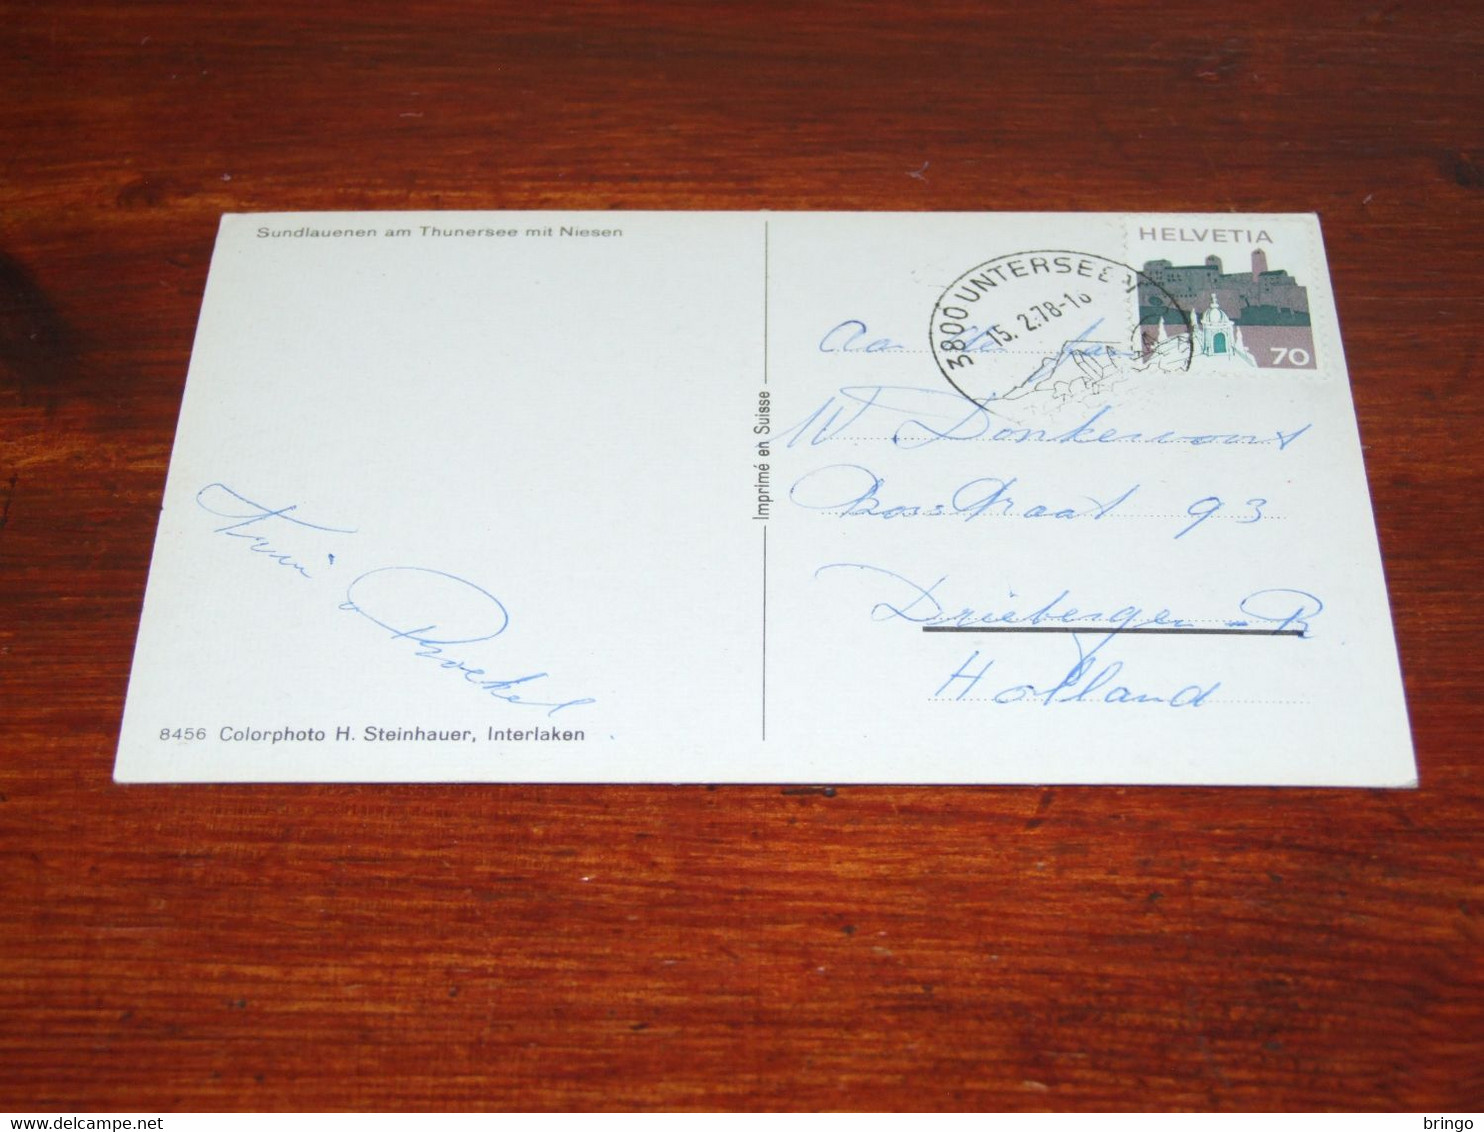 Sundlauenen am Thunersee mit Niesen
HELVETIA
70
3800 UNTERSEEN
15.2.78-18
Aan de fam
W. Donkervoort
Bosstraat 93
Driebergen - R
Holland
Imprimé en Suisse
8456 Colorphoto H. Steinhauer, Interlaken
www.delcampe.net
bringo